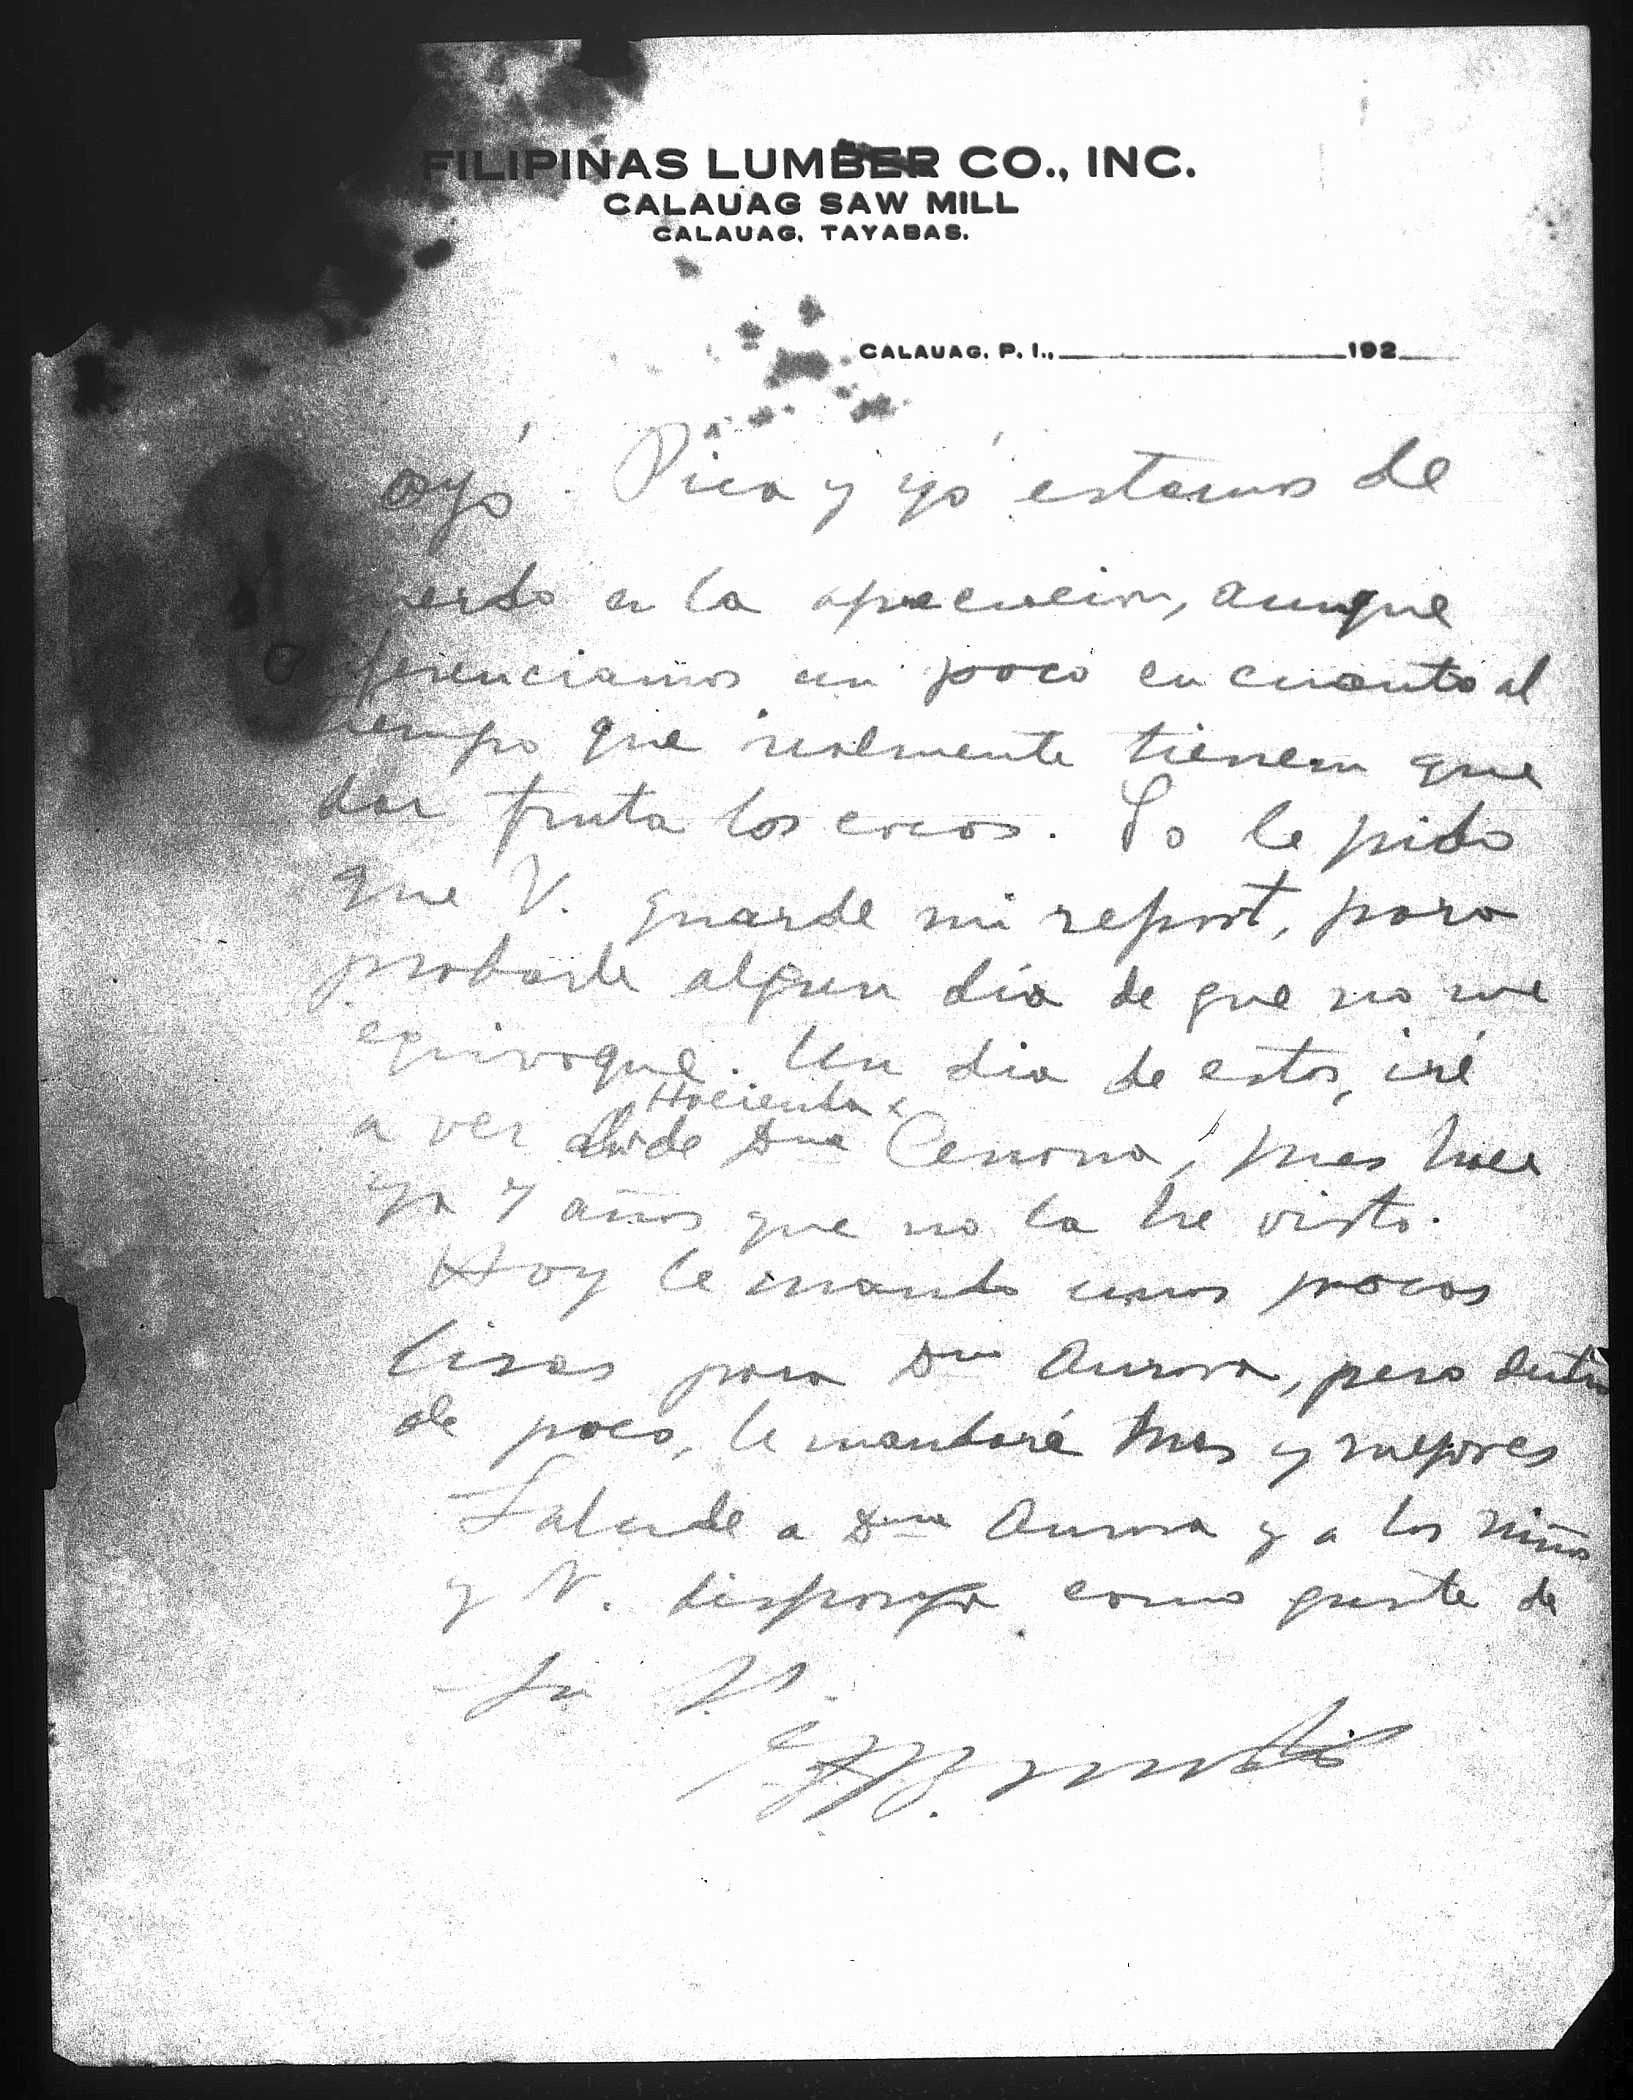 FILIPINAS LUMBER CO., INC.
CALAUAG SAW MILL
CALAUAG, TAYABAS.
CALAUAG, P. I., 192
Pica y yó estamos de
uerdo en la apreciacion, aunque
ferenciamos un poco en cuanto al
iempo que realmente tienen que
dar fruta los cocos. Yo le pido
que V. guarde mi report, para
probarle algun día de que no me
equivoque. Un dia de estos, iré
Hacienda
a ver la de Dña Cenona, pues hace
ya 7 años que no la he visto.
Hoy le mando unos pocos
lisas para Dña Aurora, pero dentro
de poco, le mandaré mas y mejores
Salude a Dña Aurora y a los niños
y V. disponga como guste de
Su